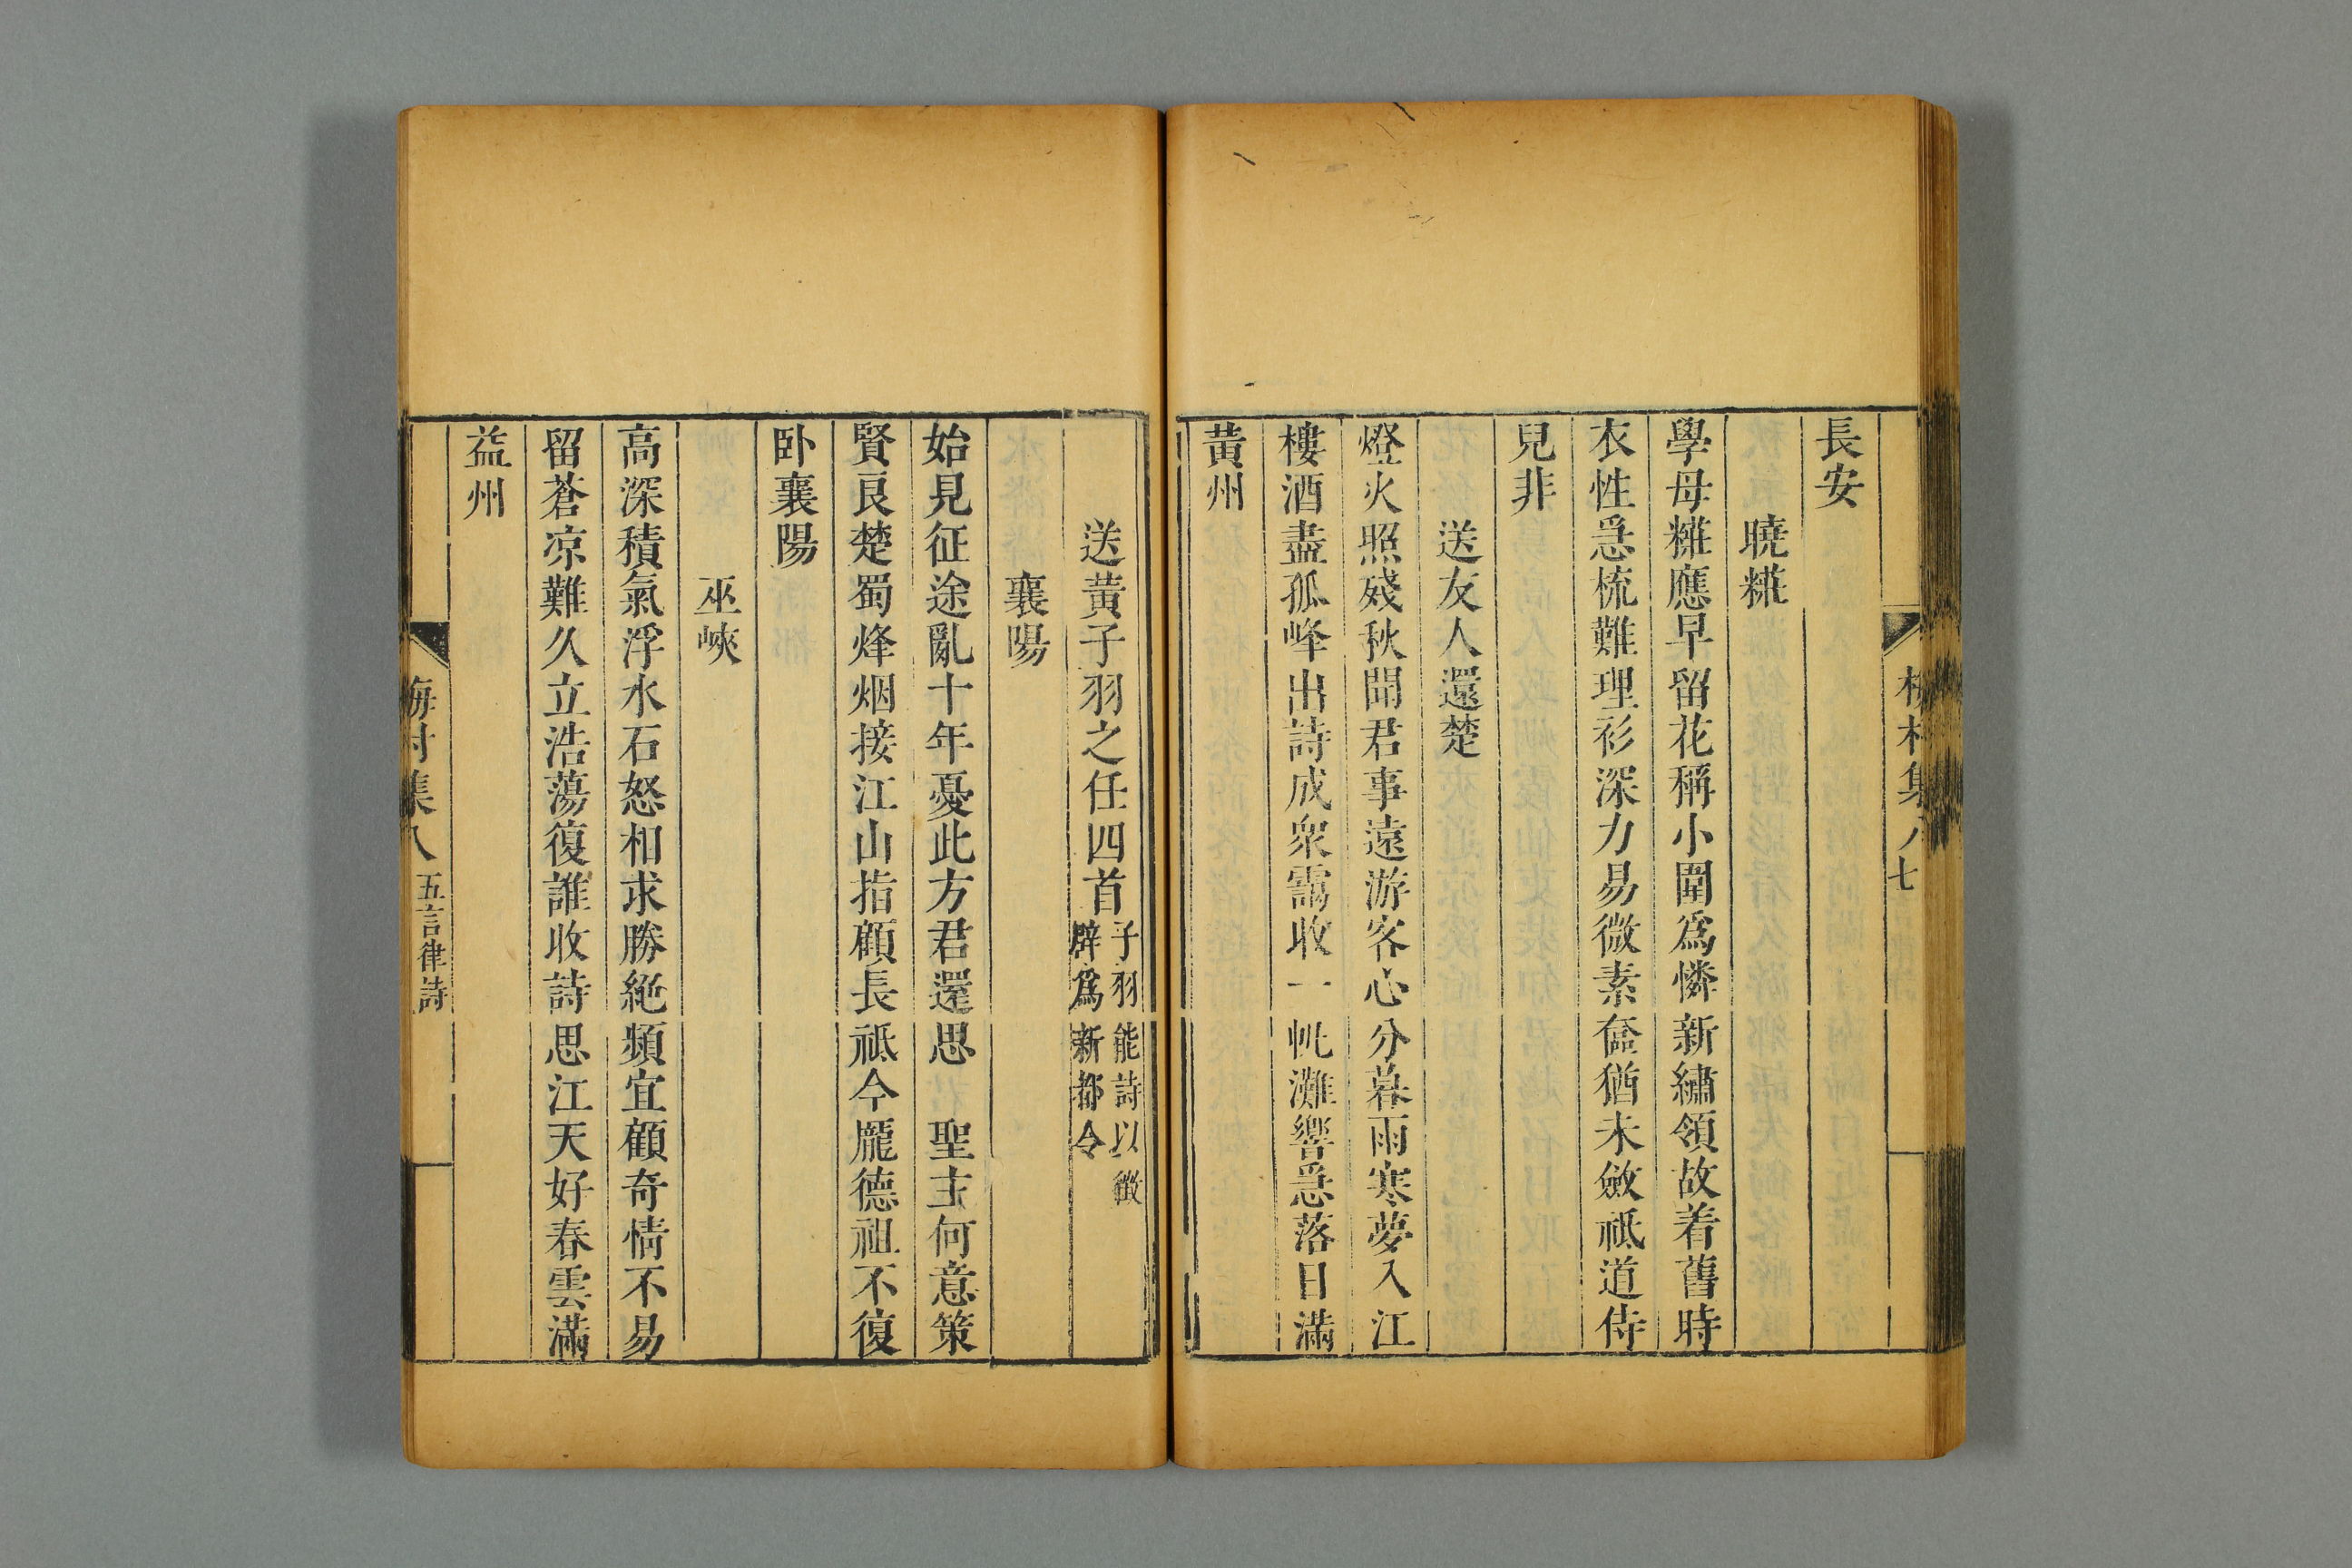 梅村集八 七
長安
曉糚
學母糚應早留花稱小圍爲憐新繡領故着舊時
衣性急梳難理衫深力易微素奩猶未斂祗道侍
兒非
送友人還楚
燈火照殘秋聞君事遠游客心分暮雨寒夢入江
樓酒盡孤峰出詩成衆靄收一帆灘響急落日滿
黃州
送黃子羽之任四首 子羽能詩以徵
辟爲新都令
襄陽
始見征途亂十年憂此方君還思 聖主何意策
賢良楚蜀烽烟接江山指顧長祗今龐德祖不復
卧襄陽
巫峽
高深積氣浮水石怒相求勝絶頻宜顧奇情不易
留蒼凉難久立浩蕩復誰收詩思江天好春雲滿
益州
梅村集八 五言律詩